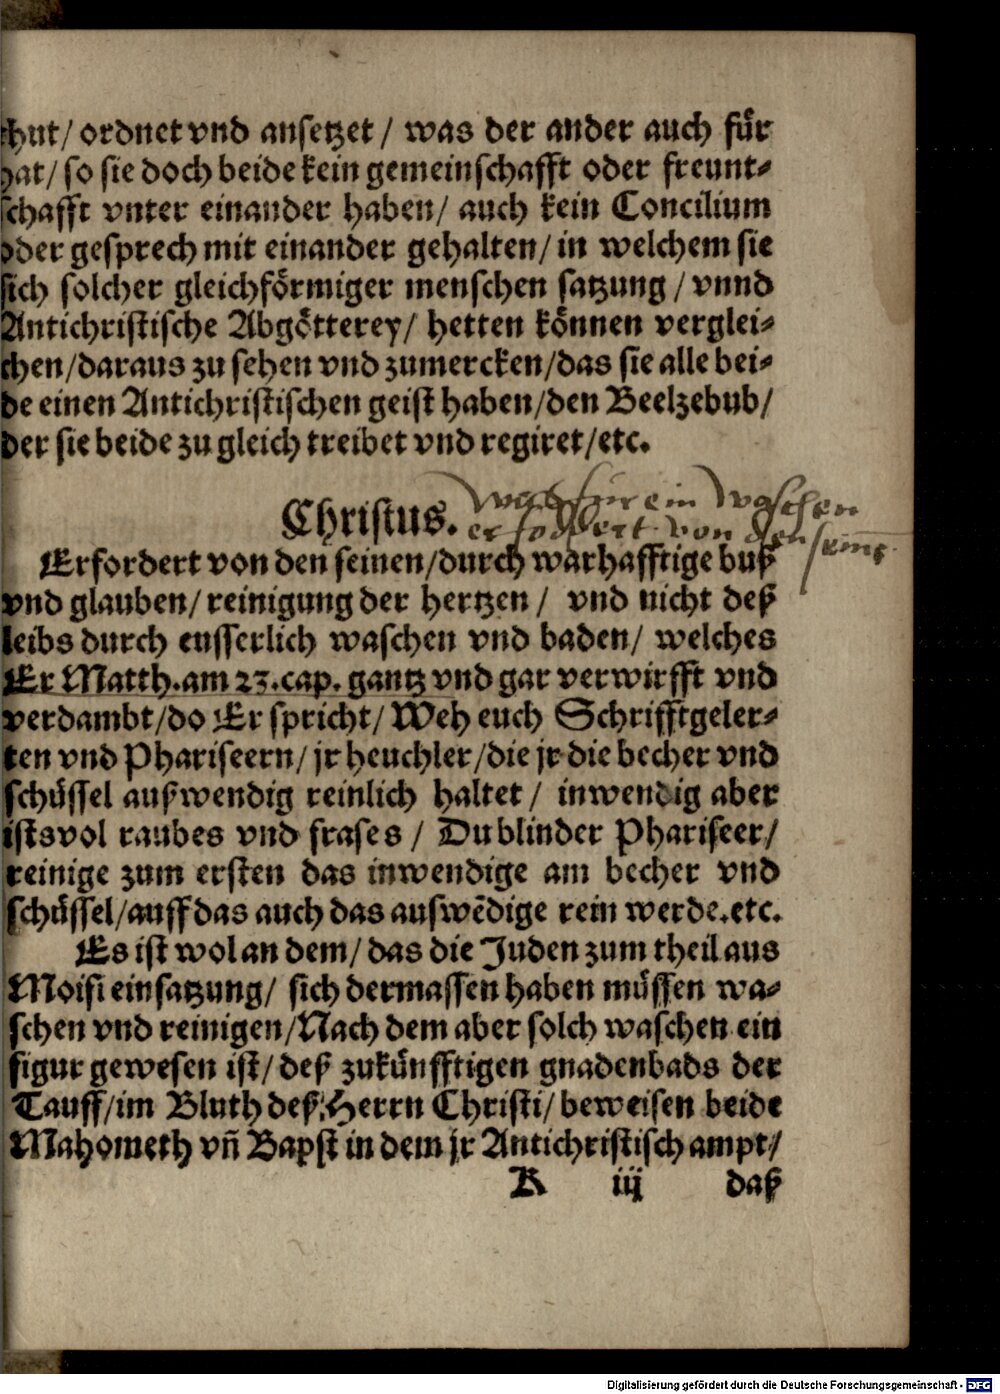 thut/ ordnet vnd ansetzet / was der ander auch für
hat/ so sie doch beide kein gemeinschafft oder freunt-
schafft vnter einander haben/ auch kein Concilium
oder gesprech mit einander gehalten/ in welchem sie
sich solcher gleichförmiger menschen satzung / vnnd
Antichristische Abgötterey/ hetten können verglei-
chen/daraus zu sehen vnd zumercken/das sie alle bei-
de einen Antichristischen geist haben/den Beelzebub/
der sie beide zu gleich treibet vnd regiret/etc.
Christus.
was für ein waschen
er foddert von den seinē
Erfordert von den seinen/durch warhafftige buß
vnd glauben/ reinigung der hertzen / vnd nicht deß
leibs durch eusserlich waschen vnd baden/ welches
Er Matth.am 23.cap. gantz vnd gar verwirfft vnd
verdambt/do Er spricht/ Weh euch Schrifftgeler-
ten vnd Phariseern/ jr heuchler/die jr die becher vnd
schüssel außwendig reinlich haltet / inwendig aber
istsvol raubes vnd frases / Du blinder Phariseer/
reinige zum ersten das inwendige am becher vnd
schüssel/auff das auch das auswēdige rein werde.etc.
Es ist wol an dem/ das die Juden zum theil aus
Moisi einsatzung/ sich dermassen haben müssen wa-
schen vnd reinigen/Nach dem aber solch waschen ein
figur gewesen ist/ deß zukünfftigen gnadenbads der
Tauff/im Bluth deß Herrn Christi/ beweisen beide
Mahometh vñ Bapst in dem jr Antichristisch ampt/
K iij daß
Digitalisierung gefördert durch die Deutsche Forschungsgemeinschaft - DFG